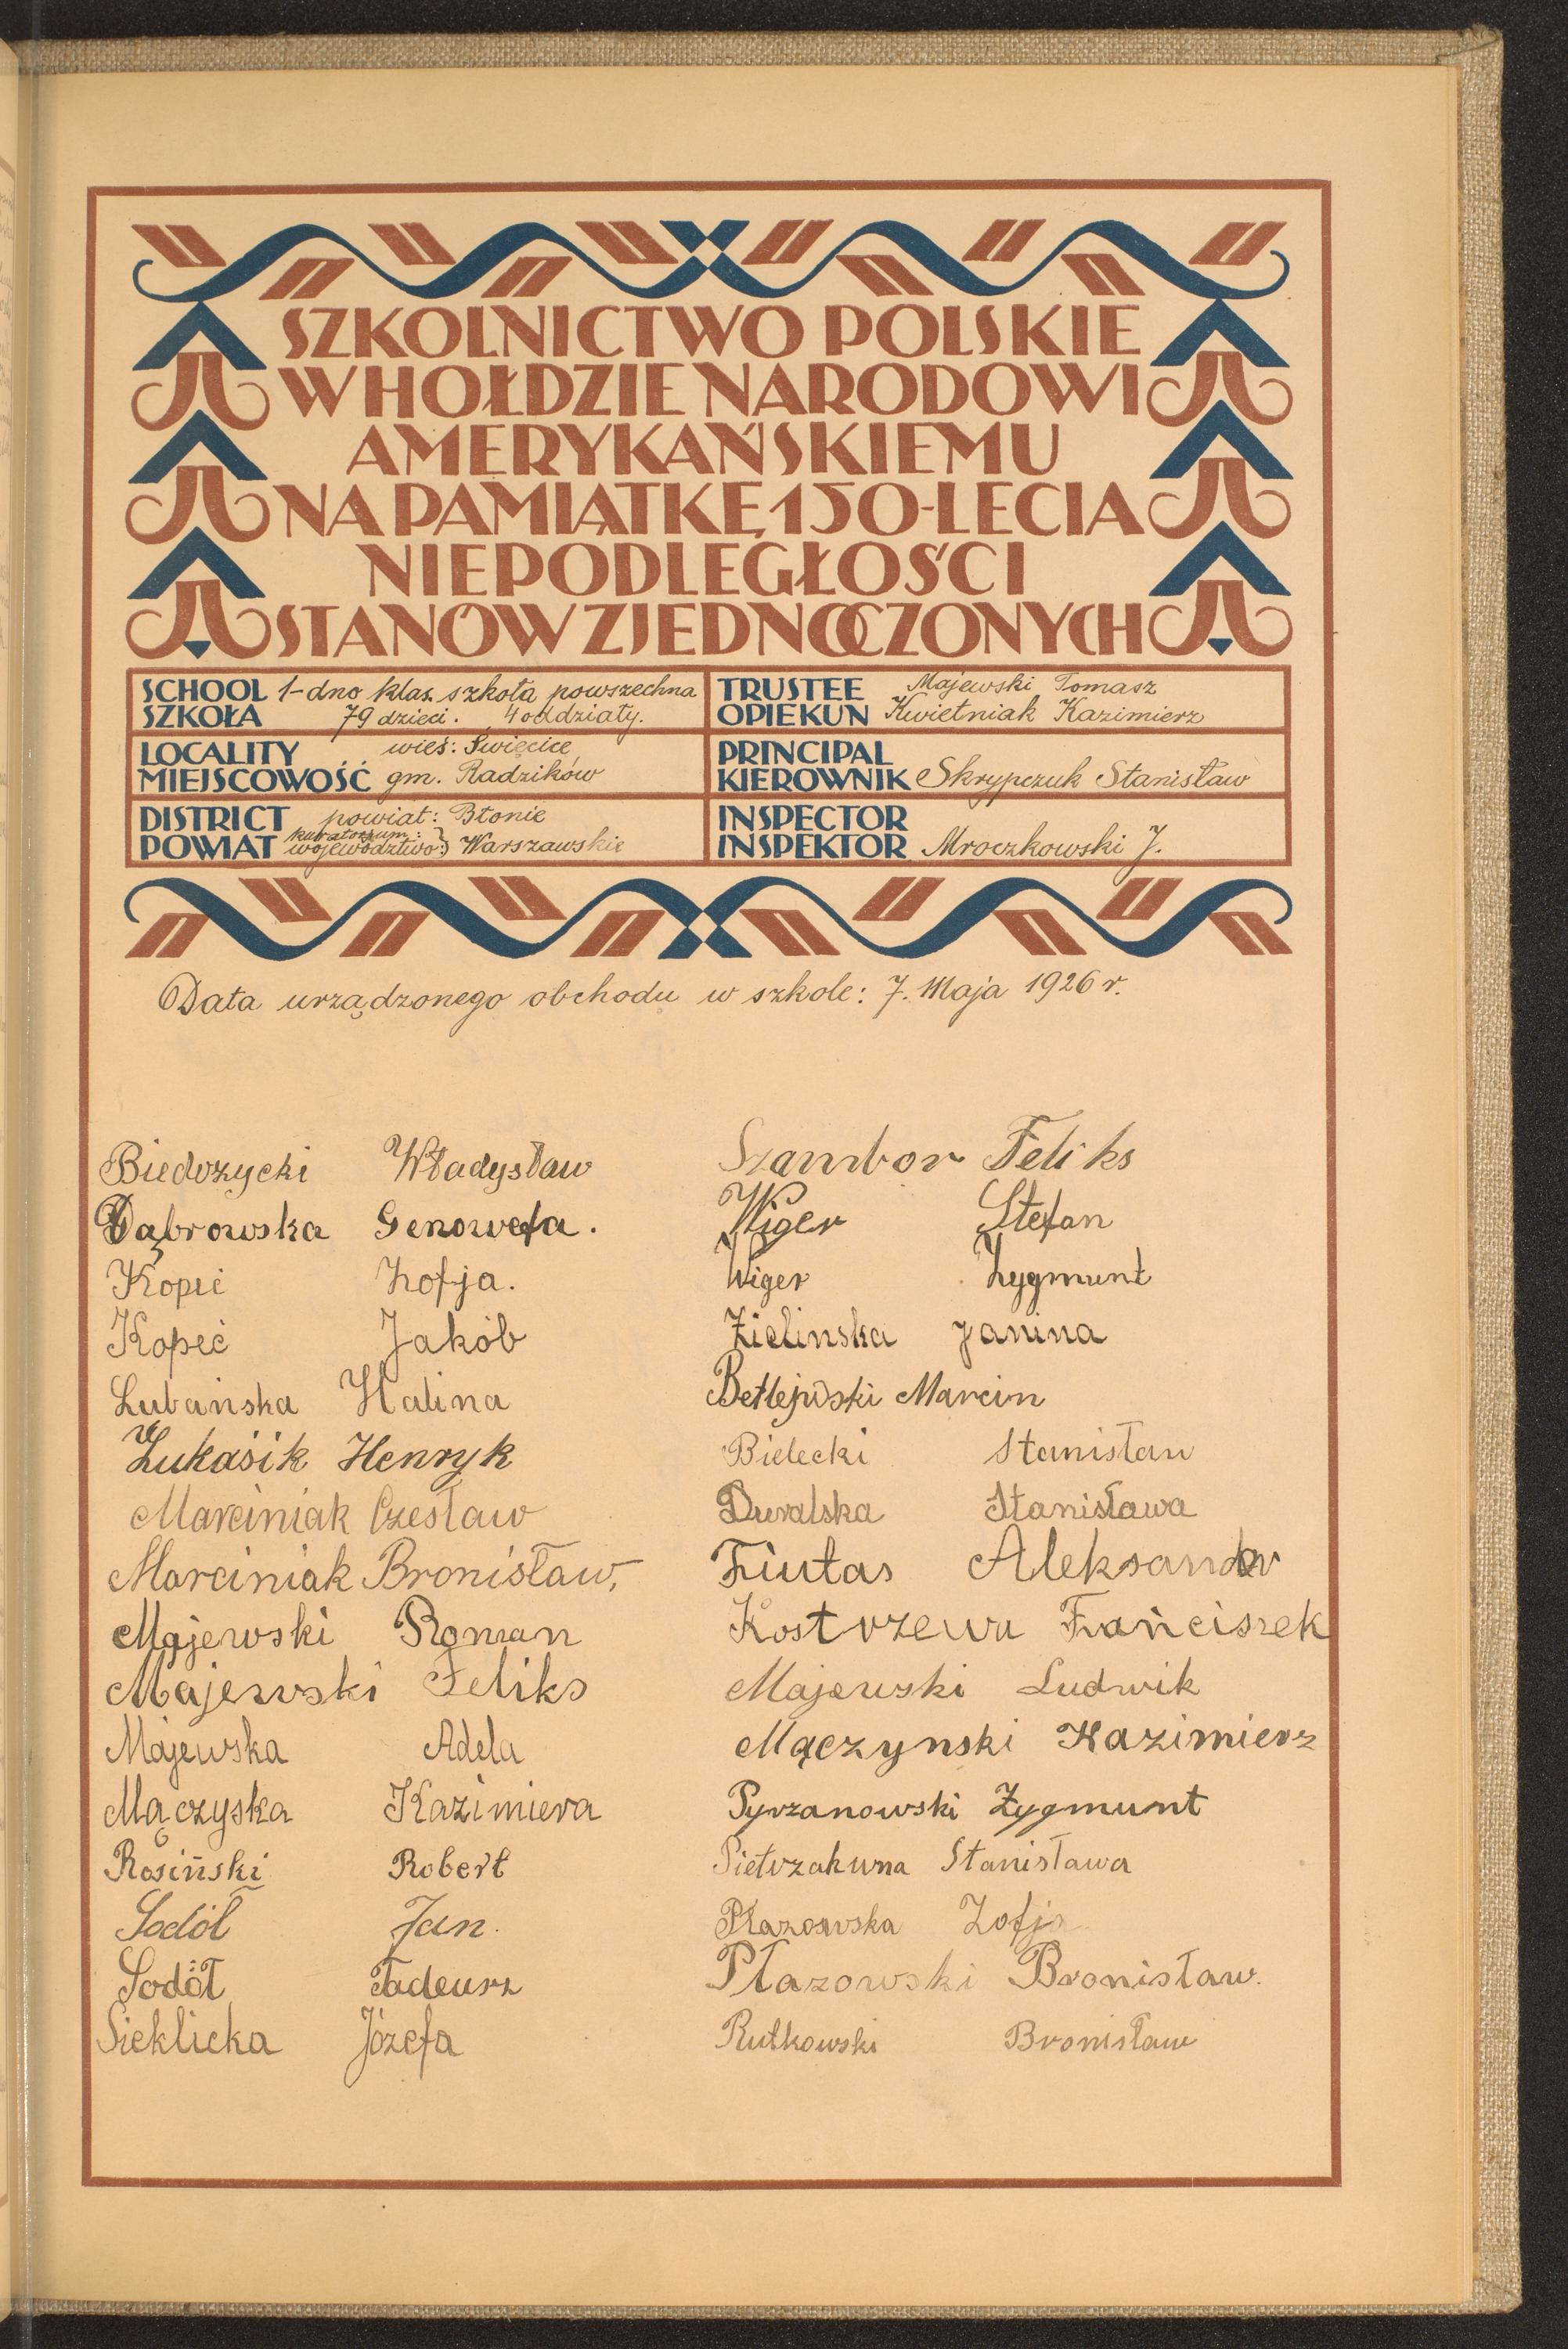 SZKOLNICTWO POLSKIE
W HOŁDZIE NARODOWI
AMERYKAŃSKIEMU
NA PAMIĄTKĘ 150-LECIA
NIEPODLEGŁOŚCI
STANÓW ZJEDNOCZONYCH
SCHOOL 1-dno klas. szkoła powszechna
SZKOŁA 79 dzieci. 4 oddziały.
TRUSTEE Majewski Tomasz
OPIEKUN Kwietniak Kazimierz
LOCALITY wieś: Święcice
MIEJSCOWOŚĆ gm. Radzików
PRINCIPAL
KIEROWNIK Skrypczuk Stanisław
DISTRICT powiat: Błonie
kuratorjum:
POWIAT województwo: } Warszawskie
INSPECTOR
INSPEKTOR Mroczkowski J.
Data urządzonego obchodu w szkole: 7. Maja 1926 r.
Biedrzycki Władysław
Dąbrowska Genowefa.
Kopeć Zofja.
Kopeć Jakób
Lubańska Halina
Łukasik Henryk
Marciniak Czesław
Marciniak Bronisław,
Majewski Roman
Majewski Feliks
Majewska Adela
Mączyska Kazimiera
Rosiński Robert
Sodół Jan.
Sodół Tadeusz
Sieklicka Józefa
Szambor Feliks
Wiger Stefan
Wiger Zygmunt
Zielinska Janina
Betlejwski Marcin
Bielecki Stanisław
Duralska Stanisława
Fiutas Aleksander
Kostrzewa Franciszek
Majewski Ludwik
Mączynski Kazimierz
Pyrzanowski Zygmunt
Pietrzakuna Stanisława
Płazowska Zofja
Płazowski Bronisław.
Rutkowski Bronisław